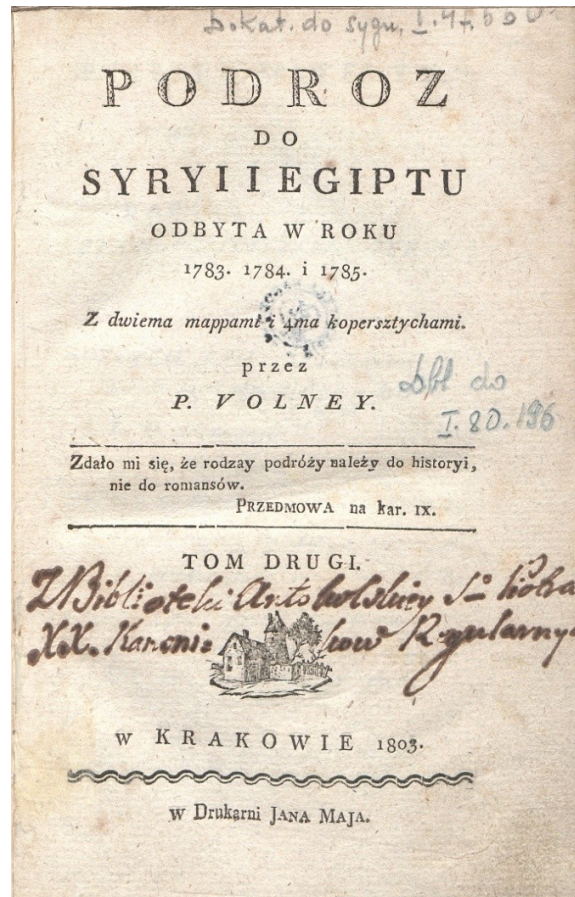 Dokat. do sygn. I.
PODROZ
DO
SYRYI I EGIPTU
ODBYTA W ROKU
1783. 1784. i 1785.
Z dwiema mappami i 4ma kopersztychami.
przez
P. VOLNEY.
Dbl do
I. 80. 196
Zdało mi się, że rodzay podróży należy do historyi,
nie do romansów.
PRZEDMOWA na kar. IX.
TOM DRUGI.
Z Biblioteki
XX. Kanonikow Regularny
w KRAKOWIE 1803.
w Drukarni JANA MAJA.